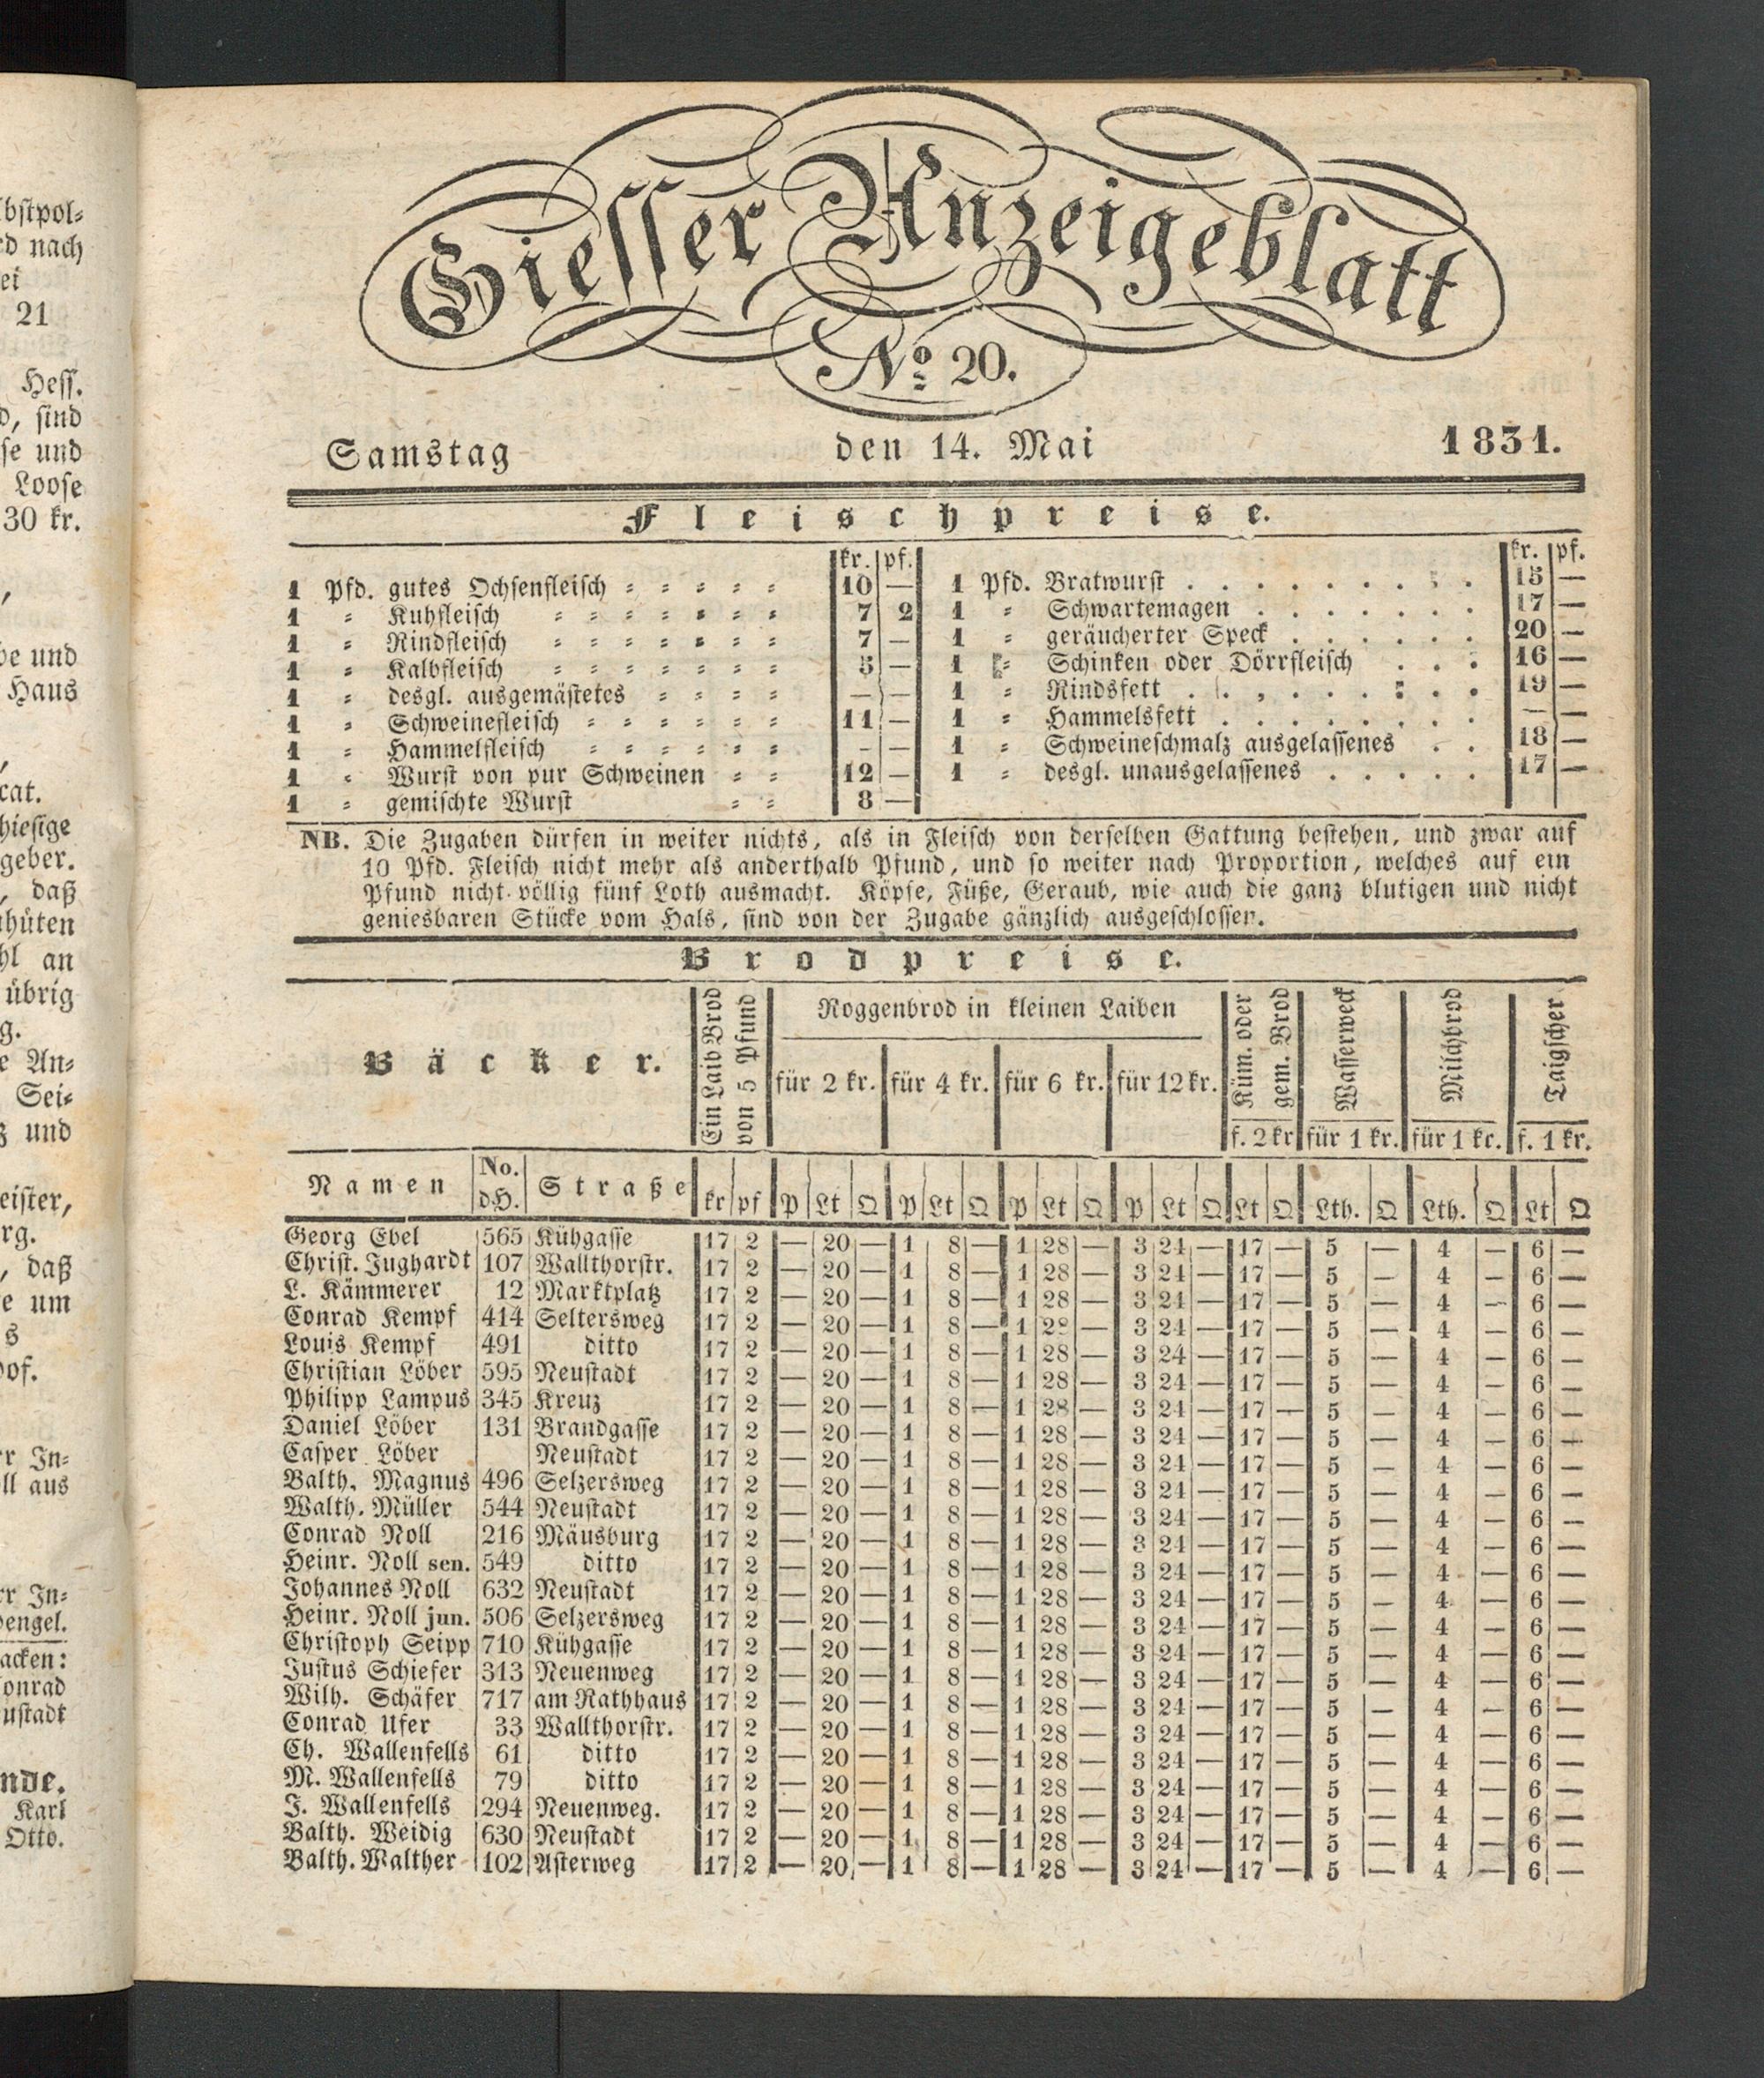 bstpol-
rd nach
ei
21
Hess.
d, sind
se und
Loose
30 kr.
be und
Haus
cat.
hiesige
geber.
, daß
hüten
hl an
übrig
g.
e An-
Sei-
z und
eister,
rg.
, daß
e um
s
of.
rr In-
ll aus
rr In-
engel.
acken:
onrad
ustadt
nde.
Karl
Otto.
Giesser Anzeigeblatt
No. 20.
Samstag den 14. Mai 1831.
Fleischpreise.
kr. pf.
1 Pfd. gutes Ochsenfleisch - - - - - 10 —
1 - Kuhfleisch - - - - - - - 7 2
1 - Rindfleisch - - - - - - - 7 —
1 - Kalbfleisch - - - - - - - 5 —
1 - desgl. ausgemästetes - - - - — —
1 - Schweinefleisch - - - - - - 11 —
1 - Hammelfleisch - - - - - - — —
1 - Wurst von pur Schweinen - - 12 —
1 - gemischte Wurst - - 8 —
kr. pf.
1 Pfd. Bratwurst . . . . . . . . . 15 —
1 - Schwartemagen . . . . . . . 17 —
1 - geräucherter Speck . . . . . . 20 —
1 - Schinken oder Dörrfleisch . . . 16 —
1 - Rindsfett . . . . . . . . . 19 —
1 - Hammelsfett . . . . . . . . — —
1 - Schweineschmalz ausgelassenes . . 18 —
1 - desgl. unausgelassenes . . . . . 17 —
NB. Die Zugaben dürfen in weiter nichts, als in Fleisch von derselben Gattung bestehen, und zwar auf
10 Pfd. Fleisch nicht mehr als anderthalb Pfund, und so weiter nach Proportion, welches auf ein
Pfund nicht völlig fünf Loth ausmacht. Köpfe, Füße, Geraub, wie auch die ganz blutigen und nicht
geniesbaren Stücke vom Hals, sind von der Zugabe gänzlich ausgeschlossen.
Brodpreise.
Bäcker.
Ein Laib Brod
von 5 Pfund
Roggenbrod in kleinen Laiben
für 2 kr. für 4 kr. für 6 kr. für 12 kr.
Küm. oder
gem. Brod
f. 2 kr
Wasserweck
für 1 kr.
Milchbrod
für 1 kr.
Taigscher
f. 1 kr.
Namen No. d.H. Straße kr pf P Lt Q P Lt Q P Lt Q P Lt Q Lt Q Lth. Q Lth. Q Lt Q
Georg Ebel 565 Kühgasse 17 2 — 20 — 1 8 — 1 28 — 3 24 — 17 — 5 — 4 — 6 —
Christ. Jughardt 107 Wallthorstr. 17 2 — 20 — 1 8 — 1 28 — 3 24 — 17 — 5 — 4 — 6 —
L. Kämmerer 12 Marktplatz 17 2 — 20 — 1 8 — 1 28 — 3 24 — 17 — 5 — 4 — 6 —
Conrad Kempf 414 Seltersweg 17 2 — 20 — 1 8 — 1 28 — 3 24 — 17 — 5 — 4 — 6 —
Louis Kempf 491 ditto 17 2 — 20 — 1 8 — 1 28 — 3 24 — 17 — 5 — 4 — 6 —
Christian Löber 595 Neustadt 17 2 — 20 — 1 8 — 1 28 — 3 24 — 17 — 5 — 4 — 6 —
Philipp Lampus 345 Kreuz 17 2 — 20 — 1 8 — 1 28 — 3 24 — 17 — 5 — 4 — 6 —
Daniel Löber 131 Brandgasse 17 2 — 20 — 1 8 — 1 28 — 3 24 — 17 — 5 — 4 — 6 —
Casper Löber Neustadt 17 2 — 20 — 1 8 — 1 28 — 3 24 — 17 — 5 — 4 — 6 —
Balth. Magnus 496 Selzersweg 17 2 — 20 — 1 8 — 1 28 — 3 24 — 17 — 5 — 4 — 6 —
Walth. Müller 544 Neustadt 17 2 — 20 — 1 8 — 1 28 — 3 24 — 17 — 5 — 4 — 6 —
Conrad Noll 216 Mäusburg 17 2 — 20 — 1 8 — 1 28 — 3 24 — 17 — 5 — 4 — 6 —
Heinr. Noll sen. 549 ditto 17 2 — 20 — 1 8 — 1 28 — 3 24 — 17 — 5 — 4 — 6 —
Johannes Noll 632 Neustadt 17 2 — 20 — 1 8 — 1 28 — 3 24 — 17 — 5 — 4 — 6 —
Heinr. Noll jun. 506 Selzersweg 17 2 — 20 — 1 8 — 1 28 — 3 24 — 17 — 5 — 4 — 6 —
Christoph Seipp 710 Kühgasse 17 2 — 20 — 1 8 — 1 28 — 3 24 — 17 — 5 — 4 — 6 —
Justus Schiefer 313 Neuenweg 17 2 — 20 — 1 8 — 1 28 — 3 24 — 17 — 5 — 4 — 6 —
Wilh. Schäfer 717 am Rathhaus 17 2 — 20 — 1 8 — 1 28 — 3 24 — 17 — 5 — 4 — 6 —
Conrad Ufer 33 Wallthorstr. 17 2 — 20 — 1 8 — 1 28 — 3 24 — 17 — 5 — 4 — 6 —
Ch. Wallenfells 61 ditto 17 2 — 20 — 1 8 — 1 28 — 3 24 — 17 — 5 — 4 — 6 —
M. Wallenfells 79 ditto 17 2 — 20 — 1 8 — 1 28 — 3 24 — 17 — 5 — 4 — 6 —
J. Wallenfells 294 Neuenweg. 17 2 — 20 — 1 8 — 1 28 — 3 24 — 17 — 5 — 4 — 6 —
Balth. Weidig 630 Neustadt 17 2 — 20 — 1 8 — 1 28 — 3 24 — 17 — 5 — 4 — 6 —
Balth. Walther 102 Asterweg 17 2 — 20 — 1 8 — 1 28 — 3 24 — 17 — 5 — 4 — 6 —